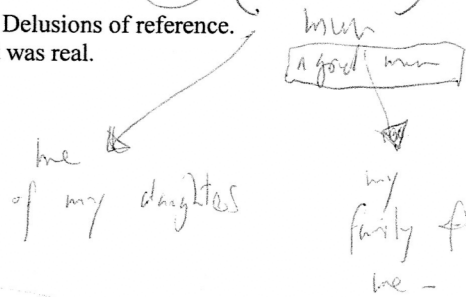 Delusions of reference.
was real.
a good
me
of my daughters
my
family
me -